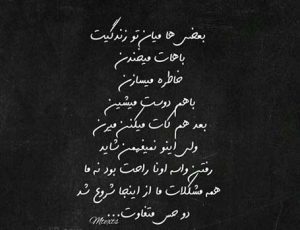 بعضی ها میان تو زندگیت
باهات میخندن
خاطره میسازن
باهم دوست میشین
بعد هم کات میکنن میرن
ولی اینو نمیفهمن شاید
رفتن واسه اونا راحت بود نه ما
همه مشکلات ما از اینجا شروع شد
دو حس متفاوت...